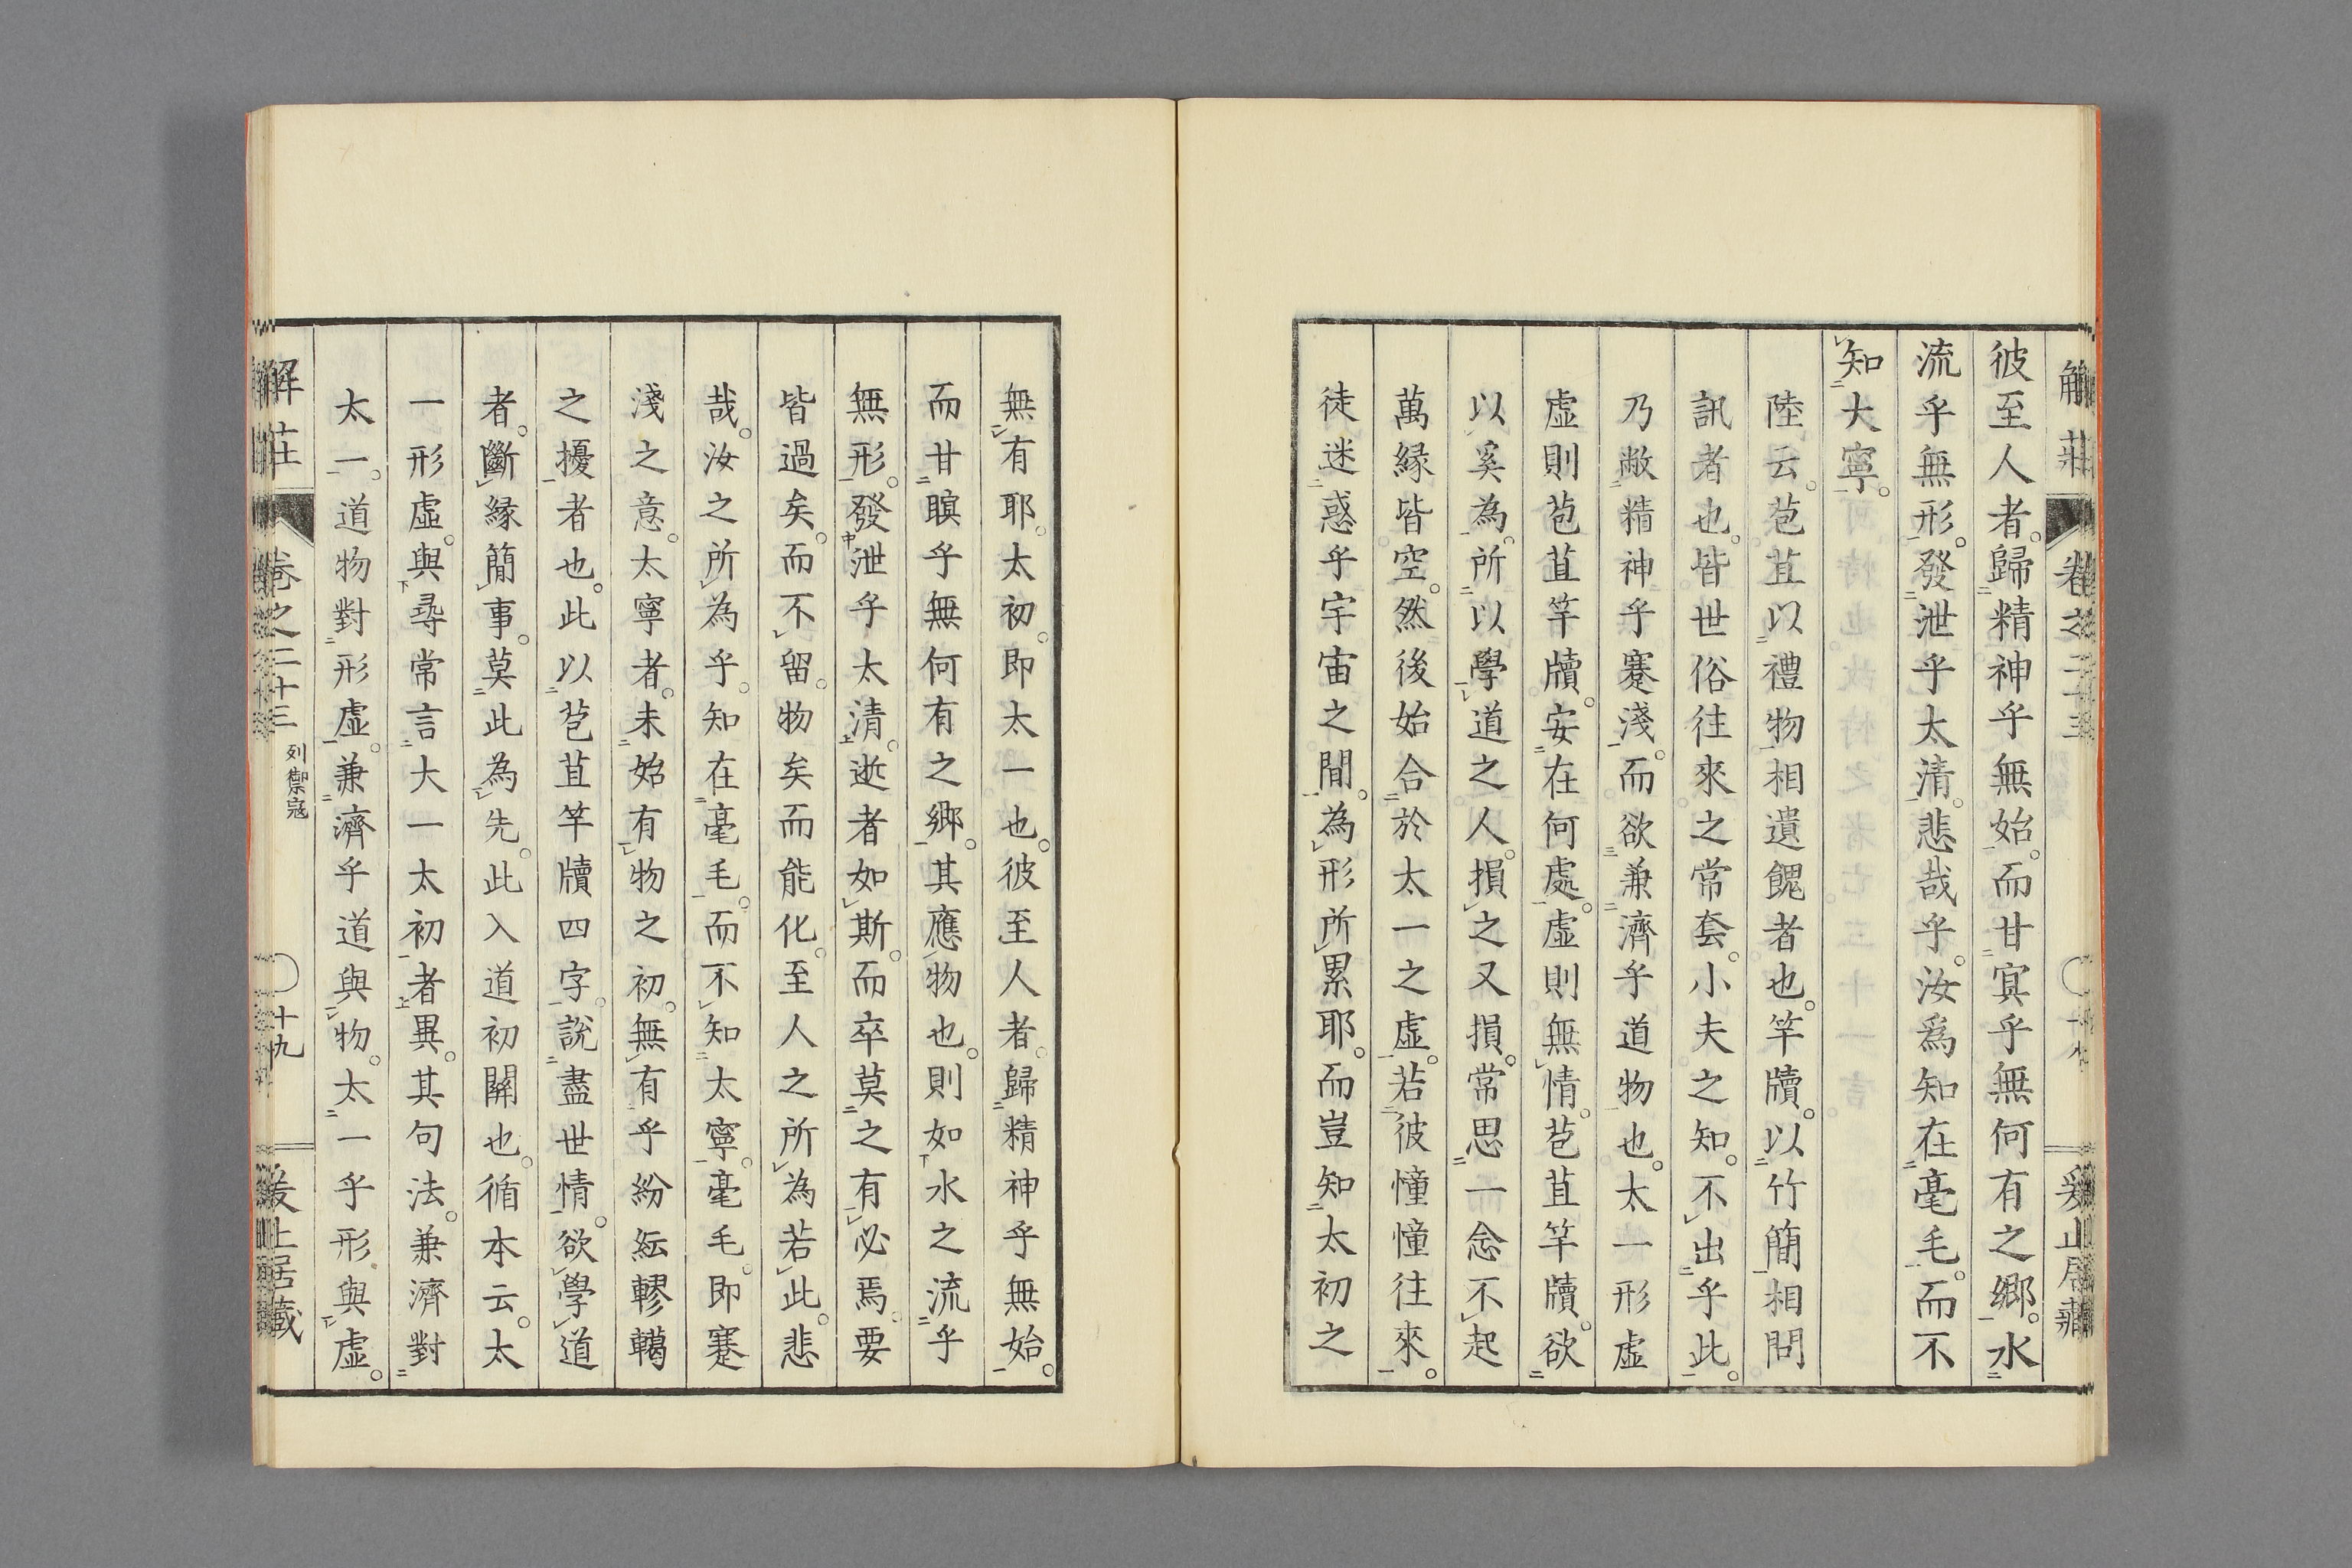 彼至人者。歸精神乎無始。而甘冥乎無何有之鄉。水
流乎無形。發泄乎太清。悲哉乎。汝爲知在毫毛。而不
知大寧。
陸云。苞苴以禮物相遺餽者也。竿牘。以竹簡相問
訊者也。皆世俗往來之常套。小夫之知。不出乎此。
乃敝精神乎蹇淺。而欲兼濟乎道物也。太一形虛
虛則苞苴竿牘。安在何處。虛則無情。苞苴竿牘。欲
以奚為。所以學道之人。損之又損。常思一念不起
萬緣皆空。然後始合於太一之虛。若彼憧憧往來。
徒迷惑乎宇宙之間。為形所累耶。而豈知太初之
無有耶。太初。即太一也。彼至人者。歸精神乎無始。
而甘瞑乎無何有之鄉。其應物也。則如水之流乎
無形。發泄乎太清。逝者如斯。而卒莫之有必焉。要
皆過矣。而不留。物矣而能化。至人之所為若此。悲
哉。汝之所為乎。知在毫毛。而不知太寧。毫毛。即蹇
淺之意。太寧者。未始有物之初。無有乎紛紜轇轕
之擾者也。此以苞苴竿牘四字。說盡世情。欲學道
者。斷緣簡事。莫此為先。此入道初關也。循本云。太
一形虛。與尋常言大一太初者異。其句法。兼濟對
太一。道物對形虛。兼濟乎道與物。太一乎形與虛。
解莊
卷之二十三
列禦寇
十九